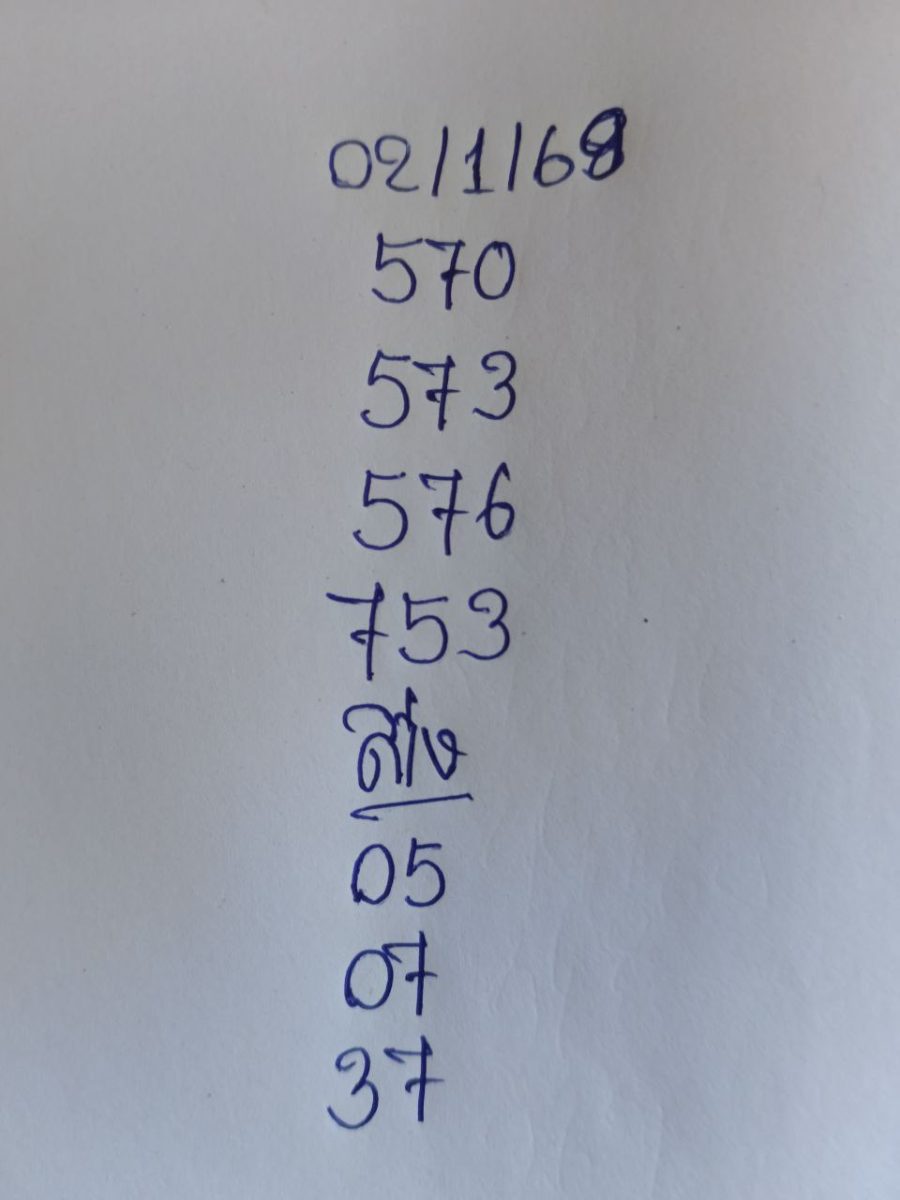 02/1/68
570
573
576
753
ล่าง
05
07
37